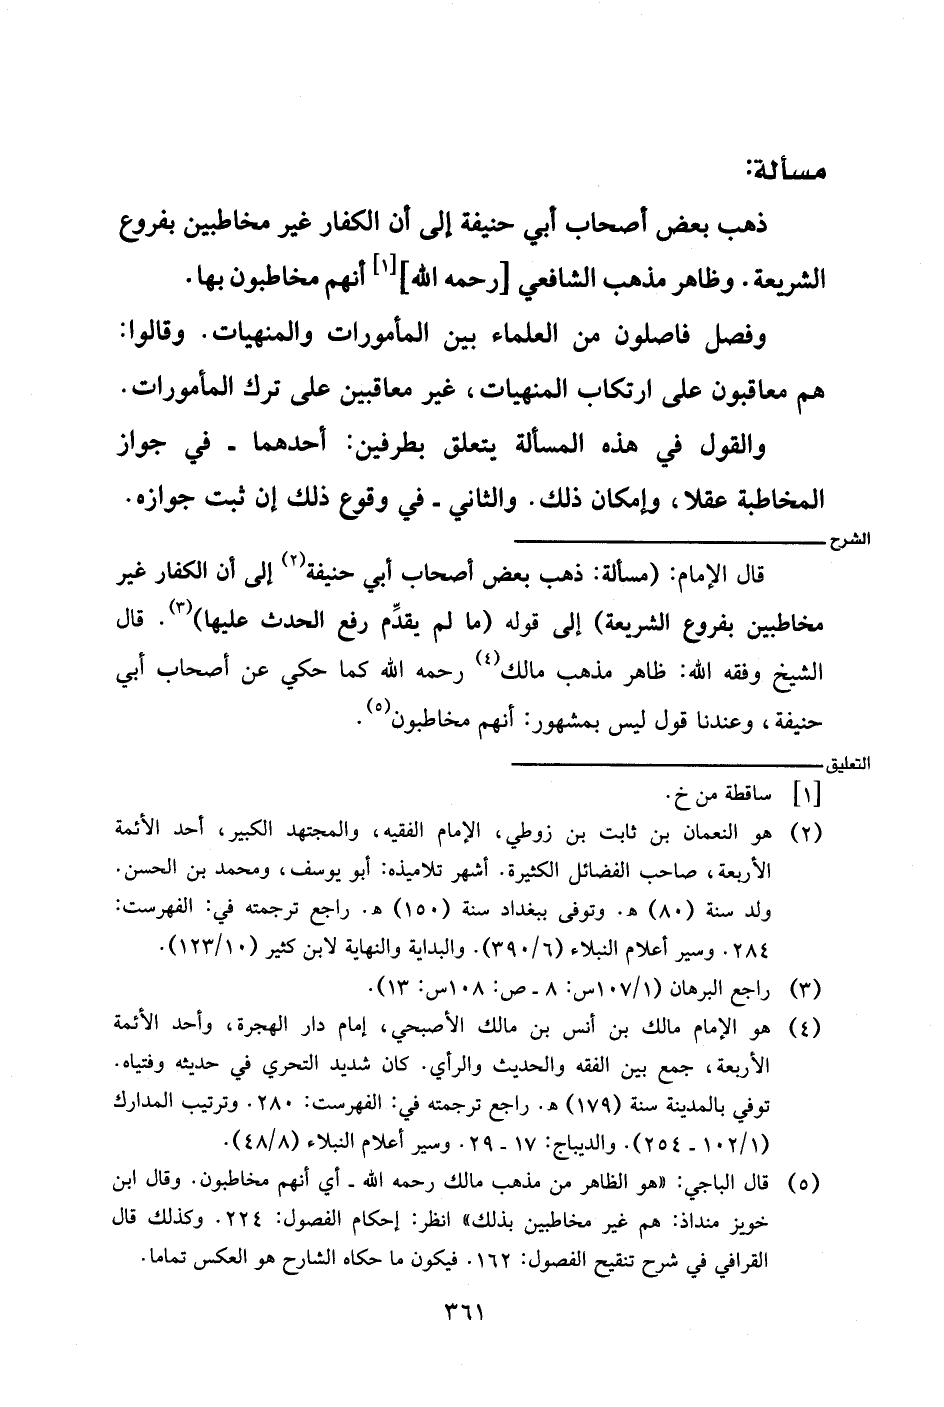 مسألة:
ذهب بعض أصحاب أبي حنيفة إلى أن الكفار غير مخاطبين بفروع
الشريعة. وظاهر مذهب الشافعي [رحمه الله][١] أنهم مخاطبون بها.
وفصل فاصلون من العلماء بين المأمورات والمنهيات. وقالوا:
هم معاقبون على ارتكاب المنهيات، غير معاقبين على ترك المأمورات.
والقول في هذه المسألة يتعلق بطرفين: أحدهما ـ في جواز
المخاطبة عقلا، وإمكان ذلك. والثاني ـ في وقوع ذلك إن ثبت جوازه.
الشرح
قال الإمام: (مسألة: ذهب بعض أصحاب أبي حنيفة(٢) إلى أن الكفار غير
مخاطبين بفروع الشريعة) إلى قوله (ما لم يقدِّم رفع الحدث عليها)(٣). قال
الشيخ وفقه الله: ظاهر مذهب مالك(٤) رحمه الله كما حكي عن أصحاب أبي
حنيفة، وعندنا قول ليس بمشهور: أنهم مخاطبون(٥).
التعليق
[١] ساقطة من خ.
(٢) هو النعمان بن ثابت بن زوطي، الإمام الفقيه، والمجتهد الكبير، أحد الأئمة
الأربعة، صاحب الفضائل الكثيرة. أشهر تلاميذه: أبو يوسف، ومحمد بن الحسن.
ولد سنة (٨٠) هـ. وتوفى ببغداد سنة (١٥٠) هـ. راجع ترجمته في: الفهرست:
٢٨٤. وسير أعلام النبلاء (٣٩٠/٦). والبداية والنهاية لابن كثير (١٢٣/١٠).
(٣) راجع البرهان (١٠٧/١س: ٨ ـ ص: ١٠٨س: ١٣).
(٤) هو الإمام مالك بن أنس بن مالك الأصبحي، إمام دار الهجرة، وأحد الأئمة
الأربعة، جمع بين الفقه والحديث والرأي. كان شديد التحري في حديثه وفتياه.
توفي بالمدينة سنة (١٧٩) هـ. راجع ترجمته في: الفهرست: ٢٨٠. وترتيب المدارك
(١٠٢/١ ـ ٢٥٤). والديباج: ١٧ ـ ٢٩. وسير أعلام النبلاء (٤٨/٨).
(٥) قال الباجي: «هو الظاهر من مذهب مالك رحمه الله ـ أي أنهم مخاطبون. وقال ابن
خويز منداذ: هم غير مخاطبين بذلك» انظر: إحكام الفصول: ٢٢٤. وكذلك قال
القرافي في شرح تنقيح الفصول: ١٦٢. فيكون ما حكاه الشارح هو العكس تماما.
٣٦١